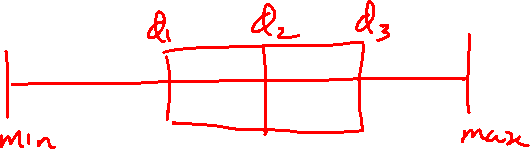 Q1 Q2 Q3
min max